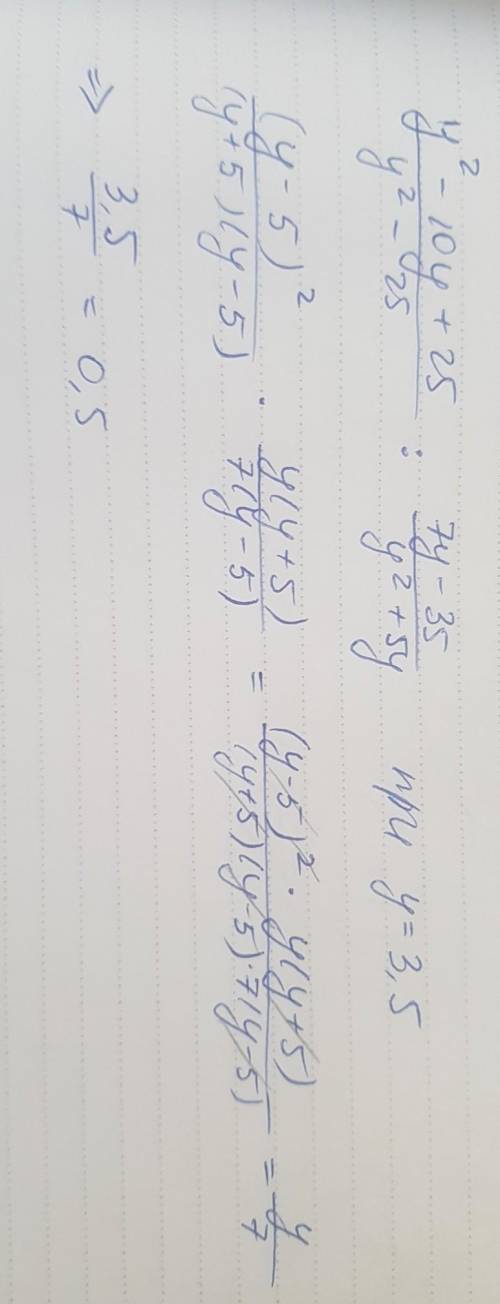 (y² - 10y + 25)/(y² - 25) : (7y - 35)/(y² + 5y) при y = 3,5
(y - 5)²/((y + 5)(y - 5)) · y(y + 5)/(7(y - 5)) = ((y - 5)² · y(y + 5))/((y + 5)(y - 5) · 7(y - 5)) = y/7
⇒ 3,5/7 = 0,5